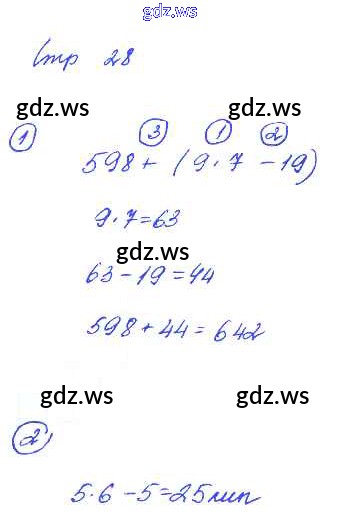 gdz.ws
Стр 28
gdz.ws gdz.ws
① ③ ① ②
598 + (9 · 7 - 19)
9 · 7 = 63
gdz.ws
63 - 19 = 44
598 + 44 = 642
gdz.ws gdz.ws
②
5 · 6 - 5 = 25 лип
gdz.ws